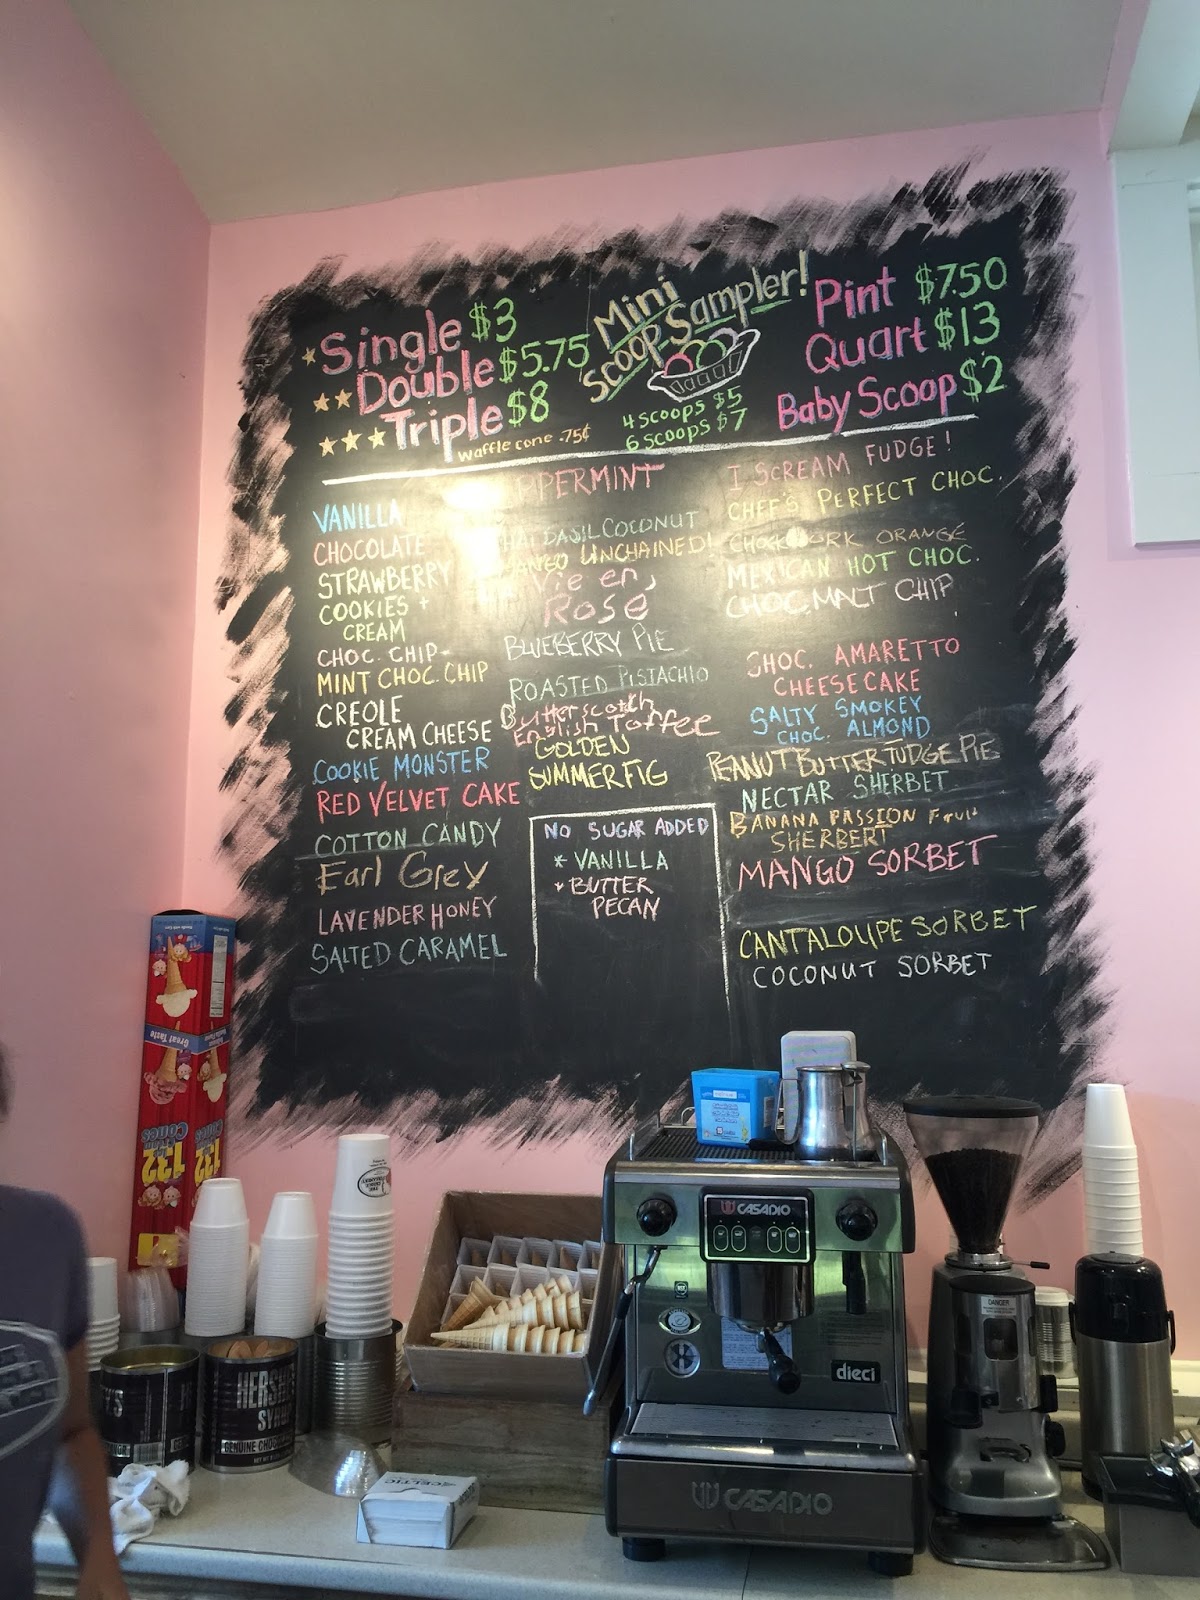 Single $3
Double $5.75
Triple $8
waffle cone .75¢
Mini
Scoop Sampler!
4 scoops $5
6 scoops $7
Pint $7.50
Quart $13
Baby Scoop $2
VANILLA
CHOCOLATE
STRAWBERRY
COOKIES +
CREAM
CHOC. CHIP
MINT CHOC. CHIP
CREOLE
CREAM CHEESE
COOKIE MONSTER
RED VELVET CAKE
COTTON CANDY
Earl Grey
LAVENDER HONEY
SALTED CARAMEL
COCONUT
UNCHAINED!
Vie en
Rose
BLUEBERRY PIE
ROASTED PISTACHIO
Butterscotch
English Toffee
GOLDEN
SUMMER FIG
NO SUGAR ADDED
* VANILLA
* BUTTER
PECAN
I SCREAM FUDGE!
CHEF'S PERFECT CHOC.
ORANGE
MEXICAN HOT CHOC.
CHOC. MALT CHIP
CHOC. AMARETTO
CHEESECAKE
SALTY SMOKEY
CHOC. ALMOND
PEANUT BUTTER FUDGE PIE
NECTAR SHERBET
BANANA PASSION Fruit
SHERBERT
MANGO SORBET
CANTALOUPE SORBET
COCONUT SORBET
Great Taste
132
Cones
132
HERSHEY'S
SYRUP
GENUINE CHOCOLATE
CELTIC
CASADIO
dieci
CASADIO
DANGER